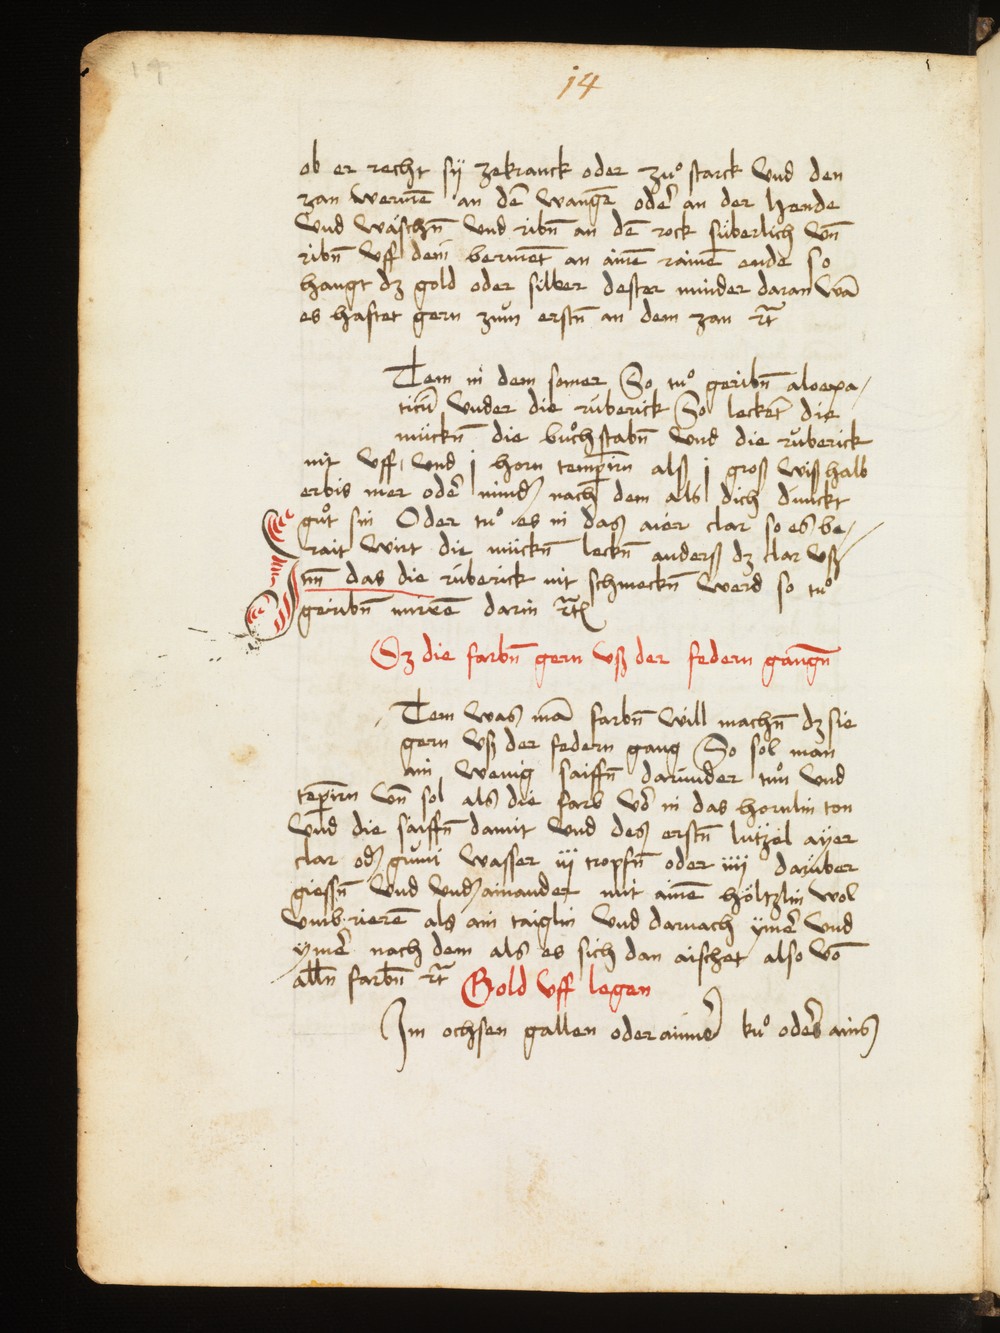 14
ob er recht sÿ zekranck oder zuͦ starck vnd den
zan wermē an dē wangē odeʳ an der hende
vnd wäschn̄ vnd ribn̄ an dē rock süberlich vn̄
ribn̄ vff dem bermēt an ainē rainē ende so
hangt dz gold oder silber dester minder daran wā
es hafftet gern zum erstn̄ an dem zan
Item in dem somer So tuͦ geribn̄ aloepa/
ticū vnder die rüberick So leckēt die
mückn̄ die buͦchstabn̄ vnd die rüberick
nit vff, vnd j horn temperirn̄ alß j groß wißhalb
erbis mer odeʳ mindʒ nach dem als dich dunckt
guͦt sin Oder tuͦ es in das aier clar so es be/
rait wirt die mückn̄ leckn̄ anderß dz clar vß
vnn das die rüberick nit schmeckn̄ werd so tuͦ
geribn̄ mirrē darin
Dz die farbn̄ gern vß der federn gangn̄
Item was mā farbn̄ will machn̄ dz sie
gern vß der federn gang So sol man
ain wenig saiffn̄ darunder tuͦn vnd
tēperirn̄ vn̄ sol als die farb in das hornlin ton
vnd die saiffn̄ damit vnd des erstn̄ lützel aÿer
clar odʒ gumi wasser iij tropfn̄ oder iiij darüber
giessn̄ vnd vndʒainander mit ainē höltzlin wol
vmb rierē als ain taiglin vnd darnach ÿmeʳ vnd
ÿmeʳ nach dem als es sich dan aischet also vō
alln̄ farbn̄
Gold vff legen
Im ochsen gallen oder aineʳ kuͦ odeʳ ains